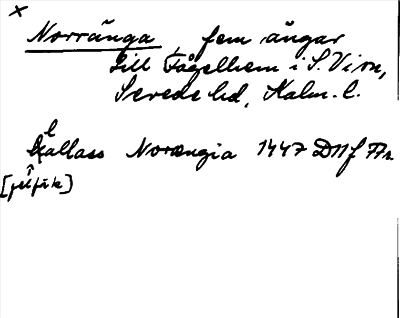 x
Norränga, fem ängar
till Fågelhem i S. Vi sn,
Sevede hd, Kalm. l.
kallass Norængia 1447 DNf